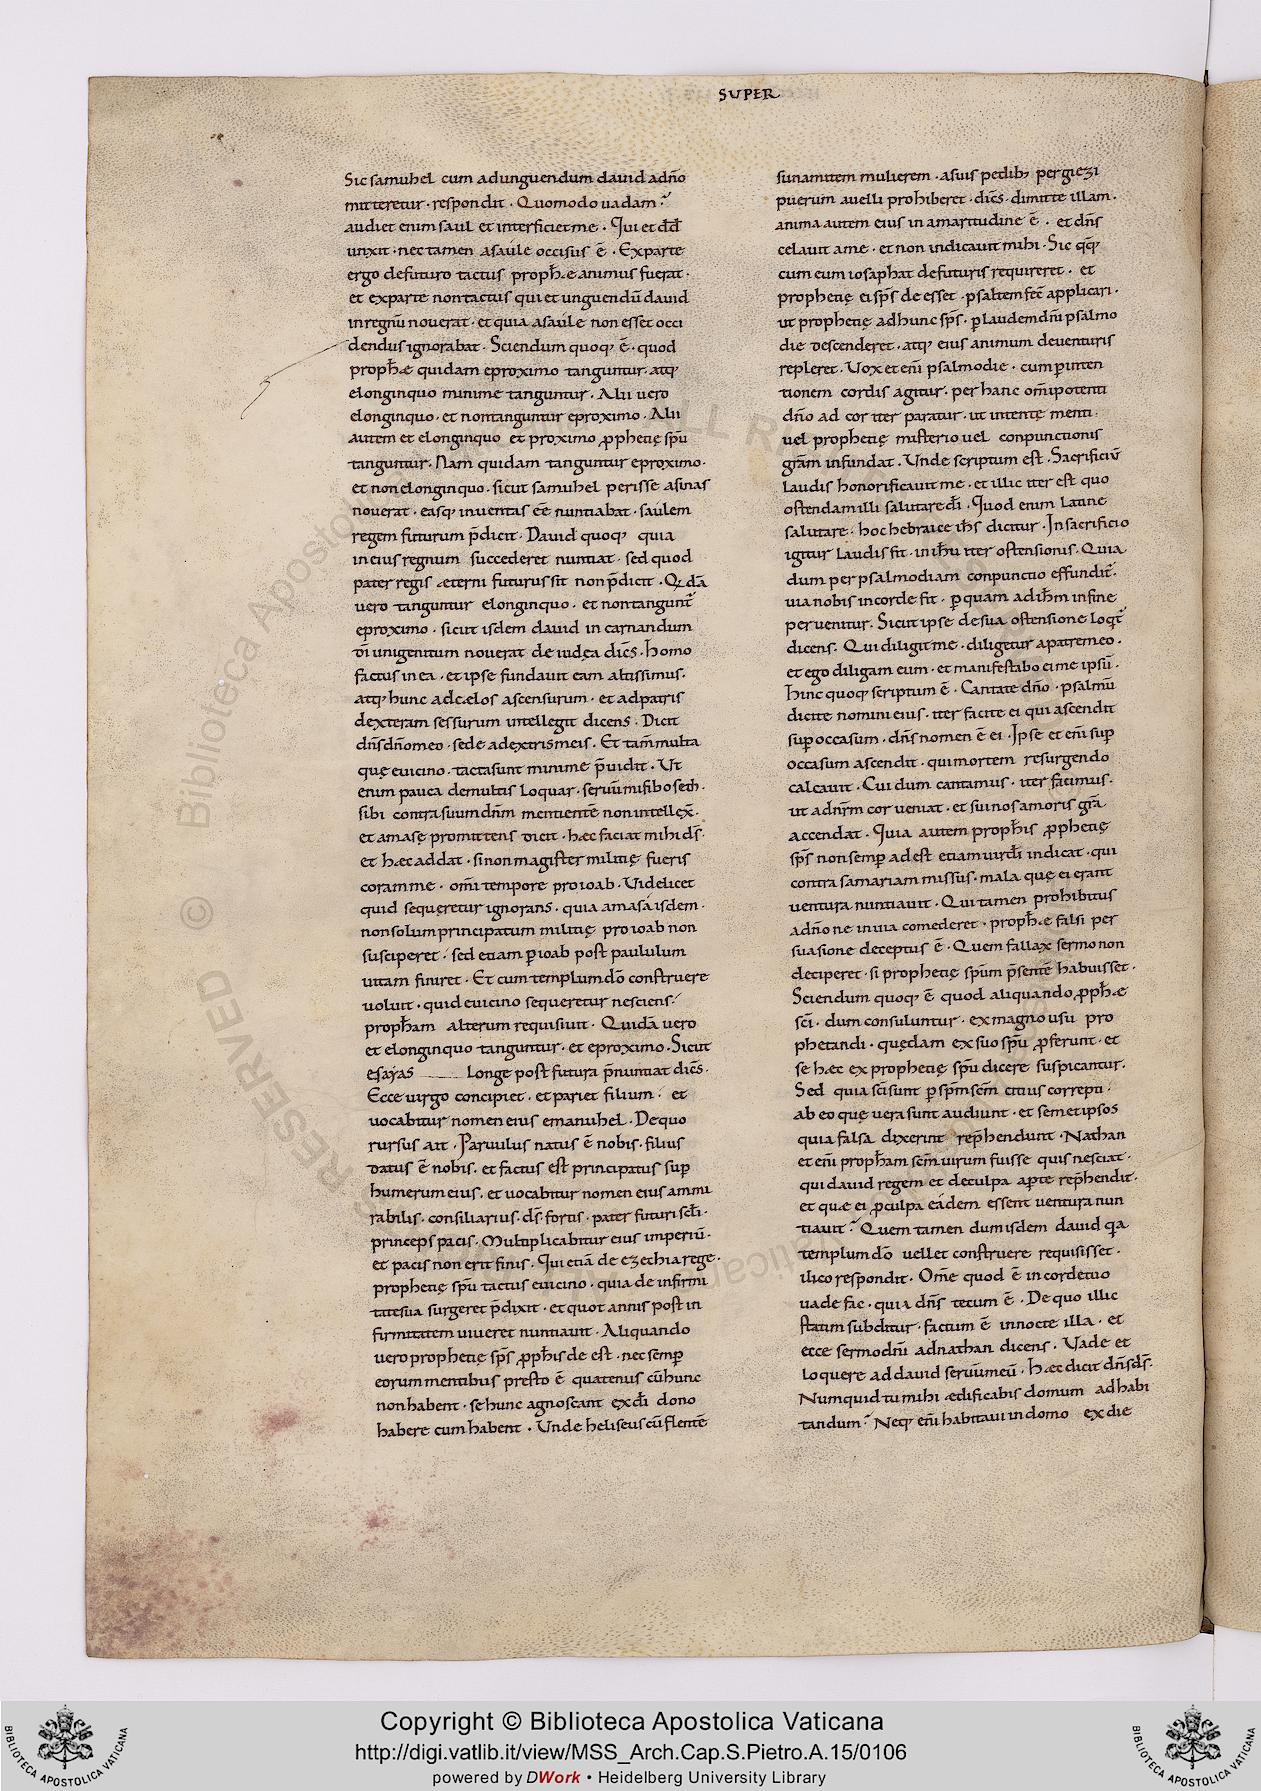 SUPER
Sic samuhel cum adunguendum dauid adño
mitteretur · respondit · Quomodo uadam ?
audiet enim saul et interficiet me · Qui et dđ
unxit · nec tamen asaule occisus ē · Exparte
ergo defuturo tactus prophæ animus fuerat ·
et exparte nontactus qui et unguendū dauid
inregnū nouerat · et quia asaule non esset occi
dendus ignorabat · Sciendum quoq; ē · quod
prophæ quidam eproximo tanguntur · atq;
elonginquo minime tanguntur · Alii uero
elonginquo · et nontanguntur eproximo · Alii
autem et elonginquo et proximo ꝓphetię sp̄u
tanguntur · Nam quidam tanguntur eproximo ·
et non elonginquo · sicut samuhel perisse asinas
nouerat · easq; inuentas eē nuntiabat · saulem
regem futurum p̄dicit · Dauid quoq; quia
ineius regnum succederet nuntiat · sed quod
pater regis æterni futurus sit non p̄dicit · Qdā
uero tanguntur elonginquo · et nontangunt̄
eproximo · sicut isdem dauid in carnandum
dī unigenitum nouerat de iudęa dicēs · homo
factus in ea · et ipse fundauit eam altissimus ·
atq; hunc adcælos ascensurum · et adpatris
dexteram sessurum intellegit dicens · Dicit
dn̄s dn̄o meo · sede adextris meis · Et tam̄ multa
quę euicino · tacta sunt minime p̄uidit · Ut
enim pauca demultis loquar · seruū mifiboseth ·
sibi contra suum dn̄m mentientē non intellex̄ ·
et amasę promittens dicit · hæc faciat mihi ds̄ ·
et hæc addat · si non magister militię fueris
coram me · om̄i tempore pro ioab · Videlicet
quid sequeretur ignorans · quia amasa isdem ·
non solum principatum militię pro ioab non
susciperet · sed etiam ꝑ ioab post paululum
uitam finiret · Et cum templum dō construere
uoluit · quid euicino sequeretur nesciens ·
proph̄am alterum requisiuit · Quidā uero
et elonginquo tanguntur · et eproximo · Sicut
esaias longe post futura p̄nuntiat dicēs ·
Ecce uirgo concipiet · et pariet filium · et
uocabitur nomen eius emanuhel · De quo
rursus ait · Paruulus natus ē nobis · filius
datus ē nobis · et factus est principatus sup̄
humerum eius · et uocabitur nomen eius ammi
rabilis · consiliarius · ds̄ fortis · pater futuri scl̄i ·
princeps pacis · Multiplicabitur eius imperiū ·
et pacis non erit finis · Qui etiā de ezechia rege ·
prophetię sp̄u tactus euicino · quia de infirmi
tate sua surgeret p̄dixit · et quot annis post in
firmitatem uiueret nuntiauit · Aliquando
uero prophetię sp̄s ꝓph̄is de est · nec semp̄
eorum mentibus presto ē quatenus cū hunc
non habent · se hunc agnoscant ex dī dono
habere cum habent · Unde heliseus cū flentē
sunamitem mulierem · asuis pedib; per giezi
puerum auelli prohiberet · dicēs · dimitte illam ·
anima autem eius in amaritudine ē · et dn̄s
celauit ame · et non indicauit mihi · Sic qq;
cum eum iosaphat defuturis requireret · et
prophetię ei sp̄s de esset · psaltem fec̄ applicari ·
ut prophetię ad hunc sp̄s · ꝑ laudem dn̄i psalmo
die descenderet · atq; eius animum deuenturis
repleret · Uox et eni psalmodię · cum ꝑ inten
tionem cordis agitur · per hanc om̄ipotenti
dn̄o ad cor iter paratur · ut intentę menti ·
uel prophetię misterio uel conpunctionis
grām infundat · Unde scriptum est · Sacrificiū
laudis honorificauit me · et illic iter est quo
ostendam illi salutare dī · Quod enim latine
salutare · hoc hebraice ih̄s dicitur · In sacrificio
igitur laudis fit · in ih̄u iter ostensionis · Quia
dum per psalmodiam conpunctio effundit̄ ·
uia nobis in corde fit · ꝑ quam ad ih̄m in fine
peruenitur · Sicut ipse de sua ostensione loqt̄
dicens · Qui diligit me · diligetur apatre meo ·
et ego diligam eum · et manifestabo ei me ipsū ·
hinc quoq; scriptum ē · Cantate dn̄o · psalmū
dicite nomini eius · iter facite ei qui ascendit
sup̄ occasum · dn̄s nomen ē ei · Ipse et eni sup̄
occasum ascendit · qui mortem resurgendo
calcauit · Cui dum cantamus · iter facimus ·
ut adnr̄m cor ueniat · et sui nos amoris grā
accendat · Quia autem proph̄is ꝓphetię
sp̄s non semp̄ ad est etiam uir dī indicat · qui
contra samariam missus · mala quę ei erant
uentura nuntiauit · Qui tamen prohibitus
adn̄o ne in uia comederet · prophæ falsi per
suasione deceptus ē · Quem fallax sermo non
deciperet · si prophetię sp̄um p̄sentē habuisset ·
Sciendum quoq; ē quod aliquando ꝓphæ
sc̄i · dum consuluntur · ex magno usu pro
phetandi · quędam ex suo sp̄u ꝓferunt · et
se hæc ex prophetię sp̄u dicere suspicantur ·
Sed quia sc̄i sunt ꝑ sp̄m sc̄m citius correpti ·
ab eo quę uera sunt audiunt · et semetipsos
quia falsa dixerint rep̄hendunt · Nathan
et eni proph̄am sc̄m uirum fuisse quis nesciat ·
qui dauid regem et deculpa aꝑte rep̄hendit ·
et quæ ei ꝓ culpa eadem essent uentura nun
tiauit · Quem tamen dum isdem dauid qa
templum dō uellet construere requisisset ·
ilico respondit · Om̄e quod ē in corde tuo
uade fac · quia dn̄s tecum ē · De quo illic
statim subditur · factum ē in nocte illa · et
ecce sermo dn̄i adnathan dicens · Uade et
loquere ad dauid seruūmeū · hæc dicit dn̄s ds̄ ·
Numquid tu mihi ædificabis domum adhabi
tandum ? Neq; eni habitaui in domo ex die
Copyright © Biblioteca Apostolica Vaticana
http://digi.vatlib.it/view/MSS_Arch.Cap.S.Pietro.A.15/0106
powered by DWork • Heidelberg University Library